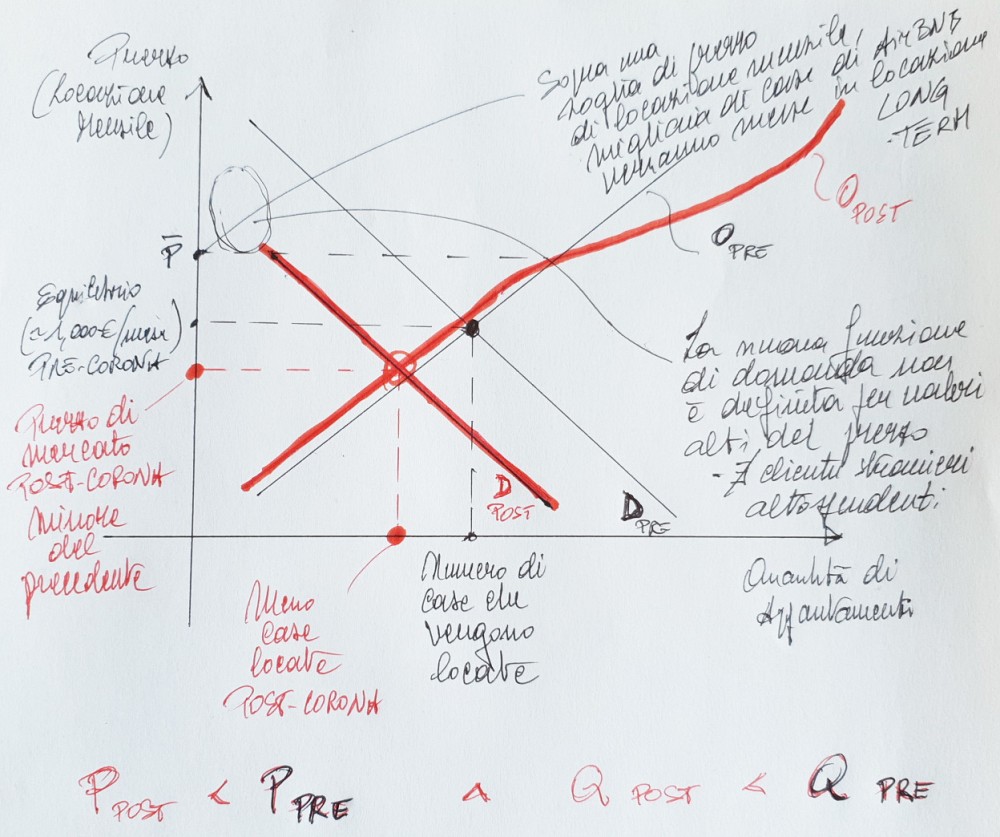 Prezzo
(Locazione
Mensile)
Sopra una
soglia di prezzo
di locazione mensile,
migliaia di case di AirBNB
verranno messe in locazione
LONG
-TERM
O POST
O PRE
P̄
Equilibrio
(≈1,000€/mese)
PRE-CORONA
Prezzo di
mercato
POST-CORONA
minore
del
precedente
La nuova funzione
di domanda non
è definita per valori
alti del prezzo
- clienti stranieri
altospendenti
D POST
D PRE
Meno
case
locate
POST-CORONA
Numero di
case che
vengono
locate
Quantità di
Appartamenti
P POST < P PRE ∧ Q POST < Q PRE